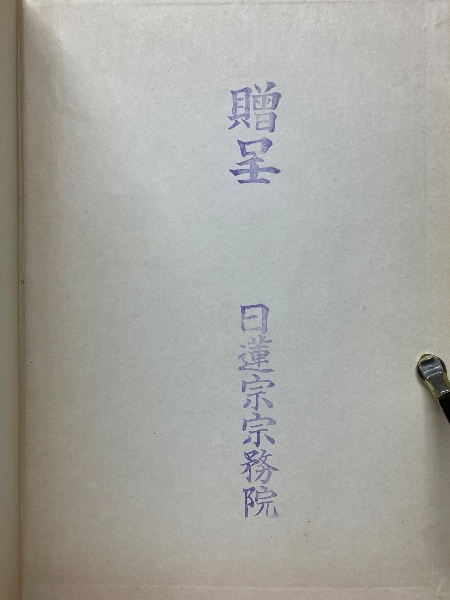 贈呈
日蓮宗宗務院